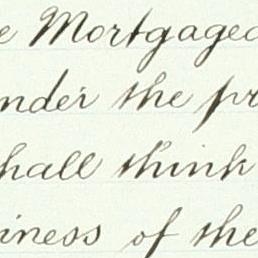 e Mortgaged
nder the pr
hall think
iness of the